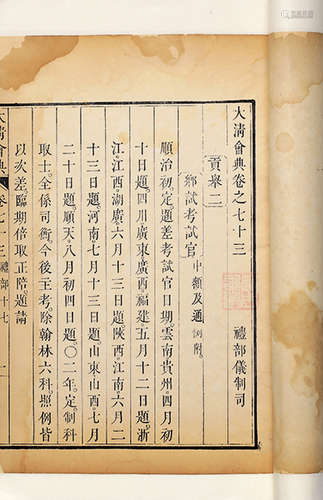 大清會典卷之七十三
禮部儀制司
貢舉二
鄉試考試官中額及通例附
順治初定題差考試官日期雲南貴州四月初
十日題四川廣東廣西福建五月十二日題浙
江江西湖廣六月十三日題陝西江南六月二
十三日題河南七月十三日題山東山西七月
二十日題順天八月初四日題〇二年定制科
取士全係司衡今後主考除翰林六科照例皆
以次差臨期倍取正陪題請
大清會典
卷七十三
禮部十七
一